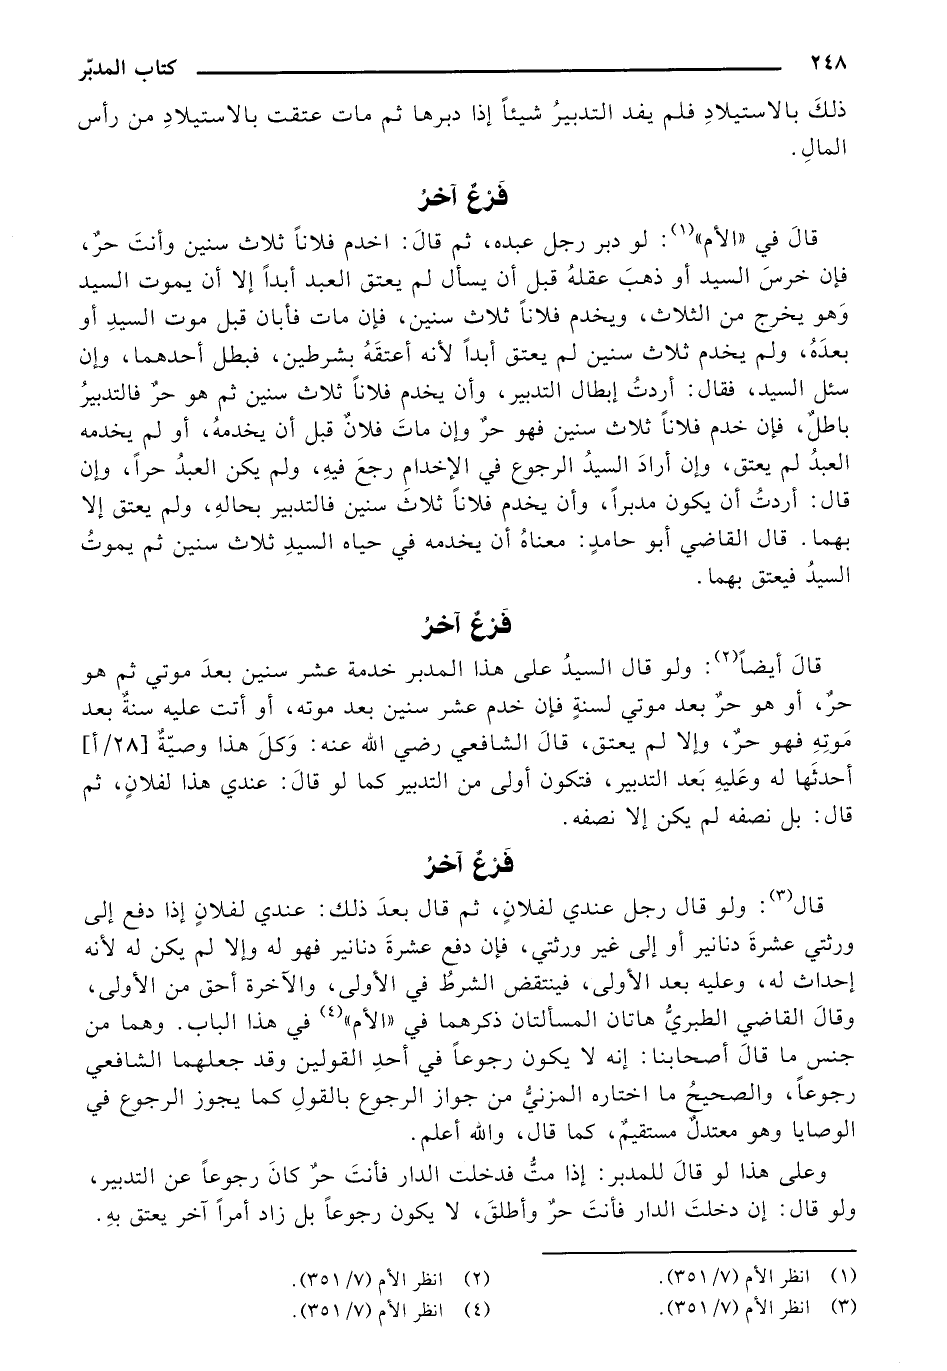 ٢٤٨ كتاب المدبّر
ذلكَ بالاستيلادِ فلم يفد التدبيرُ شيئاً إذا دبرها ثم مات عتقت بالاستيلادِ من رأس
المالِ.
فَرْعٌ آخرُ
قالَ في «الأم»(١): لو دبر رجل عبده، ثم قالَ: اخدم فلاناً ثلاث سنين وأنتَ حرٌ،
فإن خرسَ السيد أو ذهبَ عقلهُ قبل أن يسأل لم يعتق العبد أبداً إلا أن يموت السيد
وَهو يخرج من الثلاث، ويخدم فلاناً ثلاث سنين، فإن مات فأبان قبل موت السيدِ أو
بعدَهُ، ولم يخدم ثلاث سنين لم يعتق أبداً لأنه أعتقَهُ بشرطين، فبطل أحدهما، وإن
سئل السيد، فقال: أردتُ إبطال التدبير، وأن يخدم فلاناً ثلاث سنين ثم هو حرٌ فالتدبيرُ
باطلٌ، فإن خدم فلاناً ثلاث سنين فهو حرٌ وإن ماتَ فلانٌ قبل أن يخدمهُ، أو لم يخدمه
العبدُ لم يعتق، وإن أرادَ السيدُ الرجوع في الإخدام رجعَ فيهِ، ولم يكن العبدُ حراً، وإن
قال: أردتُ أن يكون مدبراً، وأن يخدم فلاناً ثلاثَ سنين فالتدبير بحالهِ، ولم يعتق إلا
بهما. قال القاضي أبو حامدٍ: معناهُ أن يخدمه في حياه السيدِ ثلاث سنين ثم يموتُ
السيدُ فيعتق بهما.
فَرْعٌ آخرُ
قالَ أيضاً(٢): ولو قال السيدُ على هذا المدبر خدمة عشر سنين بعدَ موتي ثم هو
حرٌ، أو هو حرٌ بعد موتي لسنةٍ فإن خدم عشر سنين بعد موته، أو أتت عليه سنةٌ بعد
مَوتِهِ فهو حرٌ، وإلا لم يعتق، قالَ الشافعي رضي الله عنه: وَكلَ هذا وصيّةٌ [٢٨/أ]
أحدثَها له وعَليهِ بَعد التدبير، فتكون أولى من التدبير كما لو قالَ: عندي هذا لفلانٍ، ثم
قال: بل نصفه لم يكن إلا نصفه.
فَرْعٌ آخرُ
قال(٣): ولو قال رجل عندي لفلانٍ، ثم قال بعدَ ذلك: عندي لفلانٍ إذا دفع إلى
ورثتي عشرةَ دنانير أو إلى غير ورثتي، فإن دفع عشرةَ دنانير فهو له وإلا لم يكن له لأنه
إحداث له، وعليه بعد الأولى، فينتقض الشرطُ في الأولى، والآخرة أحق من الأولى،
وقالَ القاضي الطبريُّ هاتان المسألتان ذكرهما في «الأم»(٤) في هذا الباب. وهما من
جنس ما قالَ أصحابنا: إنه لا يكون رجوعاً في أحدِ القولين وقد جعلهما الشافعي
رجوعاً، والصحيحُ ما اختاره المزنيُّ من جواز الرجوع بالقولِ كما يجوز الرجوع في
الوصايا وهو معتدلٌ مستقيمٌ، كما قال، والله أعلم.
وعلى هذا لو قالَ للمدبر: إذا متُّ فدخلت الدار فأنتَ حرٌ كانَ رجوعاً عن التدبير،
ولو قال: إن دخلتَ الدار فأنتَ حرٌ وأطلقَ، لا يكون رجوعاً بل زاد أمراً آخر يعتق بهِ.
(١) انظر الأم (٧/ ٣٥١). (٢) انظر الأم (٧/ ٣٥١).
(٣) انظر الأم (٧/ ٣٥١). (٤) انظر الأم (٧/ ٣٥١).